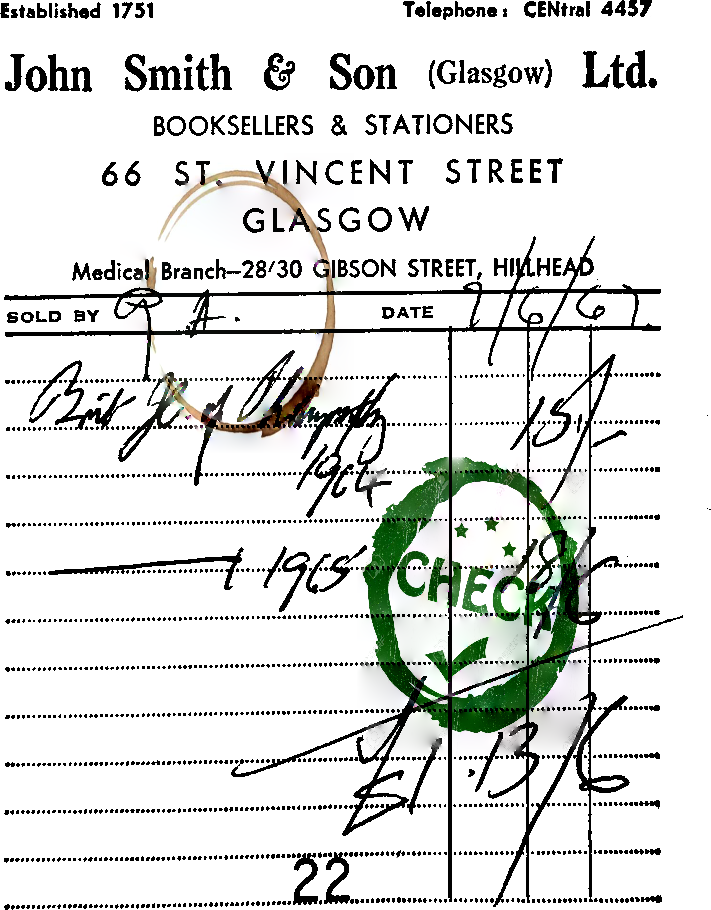 Established 1751 Telephone: CENtral 4457
John Smith & Son (Glasgow) Ltd.
BOOKSELLERS & STATIONERS
66 ST. VINCENT STREET
GLASGOW
Medical Branch—28/30 GIBSON STREET, HILLHEAD
SOLD BY P. A. DATE 9/6/67.
Brit Jl of 15/-
1964
1965 18/6
CHECK
£1.13/6
22